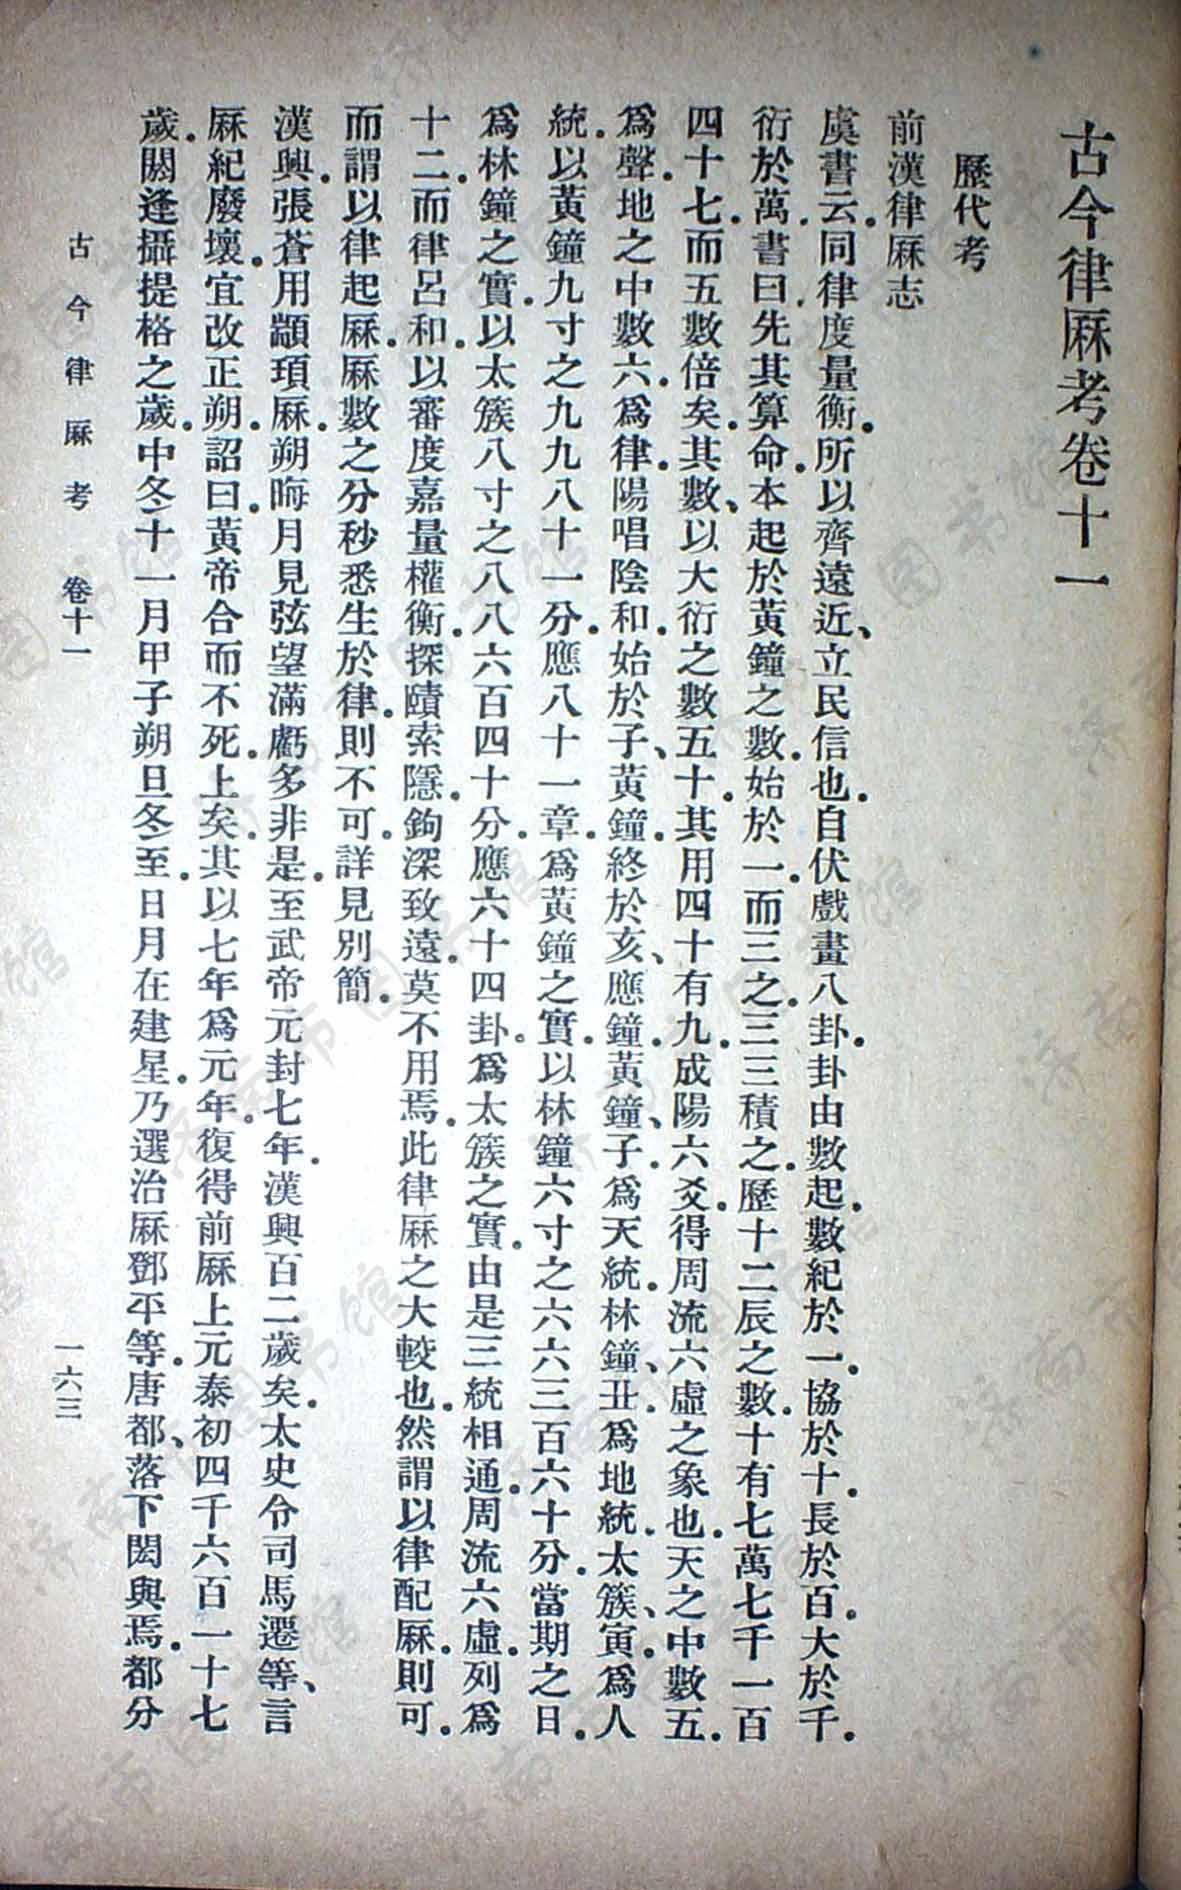 古今律厤考卷十一
歷代考
前漢律厤志
虞書云。同律度量衡。所以齊遠近、立民信也。自伏戲畫八卦。卦由數起。數紀於一。協於十。長於百。大於千。
衍於萬。書曰。先其算命。本起於黃鐘之數。始於一。而三之。三三積之。歷十二辰之數。十有七萬七千一百
四十七。而五數倍矣。其數、以大衍之數五十。其用四十有九。成陽六爻。得周流六虛之象也。天之中數五。
爲聲。地之中數六。爲律。陽唱陰和。始於子、黃鐘。終於亥、應鐘。黃鐘、子。爲天統。林鐘、丑。爲地統。太簇、寅。爲人
統。以黃鐘九寸之九。九八十一分。應八十一章。爲黃鐘之實。以林鐘六寸之六。六三百六十分。當期之日。
爲林鐘之實。以太簇八寸之八。八六百四十分。應六十四卦。爲太簇之實。由是三統相通。周流六虛。列爲
十二。而律呂和。以審度嘉量權衡。探賾索隱。鉤深致遠。莫不用焉。此律厤之大較也。然謂以律配厤。則可。
而謂以律起厤。厤數之分秒悉生於律。則不可。詳見別簡。
漢興。張蒼用顓頊厤。朔晦月見弦望滿虧多非是。至武帝元封七年。漢興百二歲矣。太史令司馬遷等、言
厤紀廢壞。宜改正朔。詔曰。黃帝合而不死。上矣。其以七年爲元年。復得前厤上元泰初四千六百一十七
歲。閼逢攝提格之歲。中冬十一月甲子朔旦冬至。日月在建星。乃選治厤鄧平等。唐都、落下閎與焉。都分
古今律厤考 卷十一 一六三
济南市图书馆